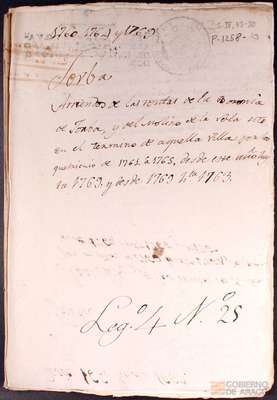 1760. 1764 y 1769.
I-IV, 43-30
P-1258-10
Jorba
Arriendo de las rentas de la Baronia
de Jorba, y del Molino de la Vila sito
en el termino de aquella Villa por los
quatrienios de 1761. à 1765, desde este año has
ta 1769. y desde 1769 hta 1763.
Leg.º 4 N.º 25
GOBIERNO
DE ARAGON